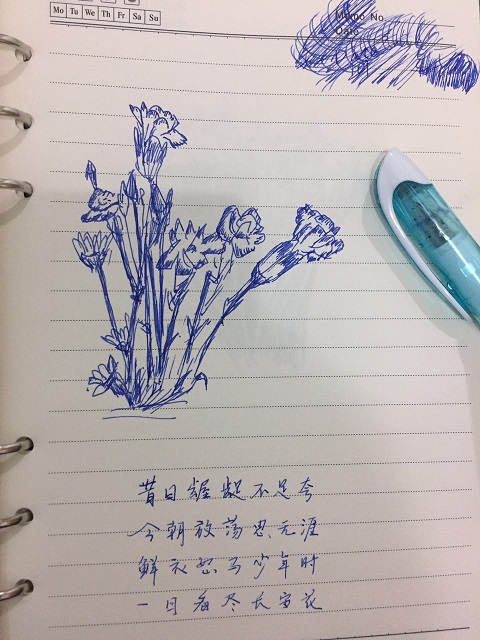 Mo Tu We Th Fr Sa Su
Memo No.
Date
昔日龌龊不足夸
今朝放荡思无涯
鲜衣怒马少年时
一日看尽长安花